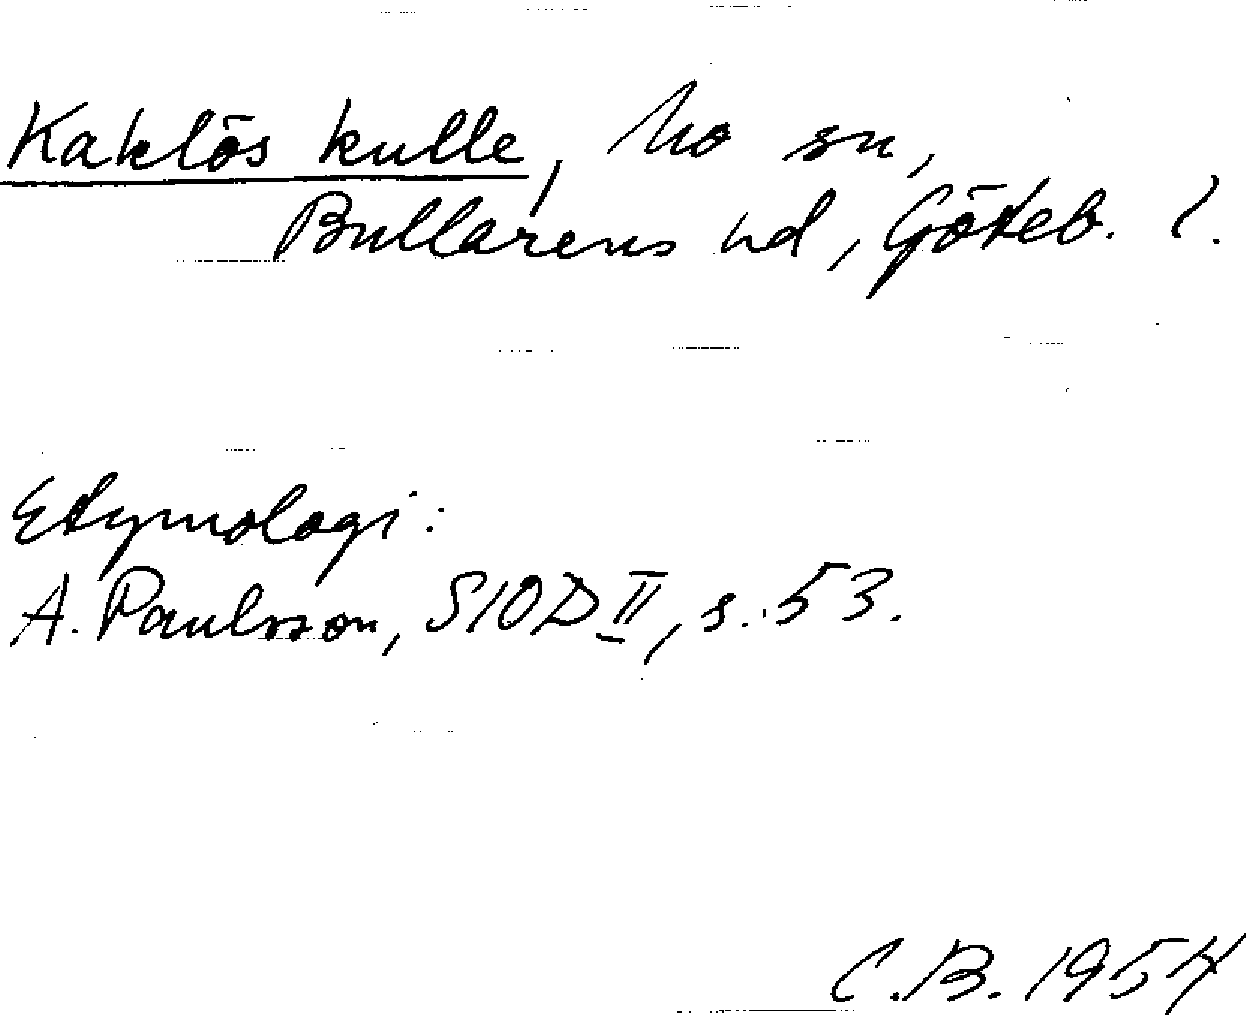 Kaklös kulle, Mo sn,
Bullarens hd, Göteb. l.
Etymologi:
A. Paulsson, SIOD II, s. 53.
C.B. 1954